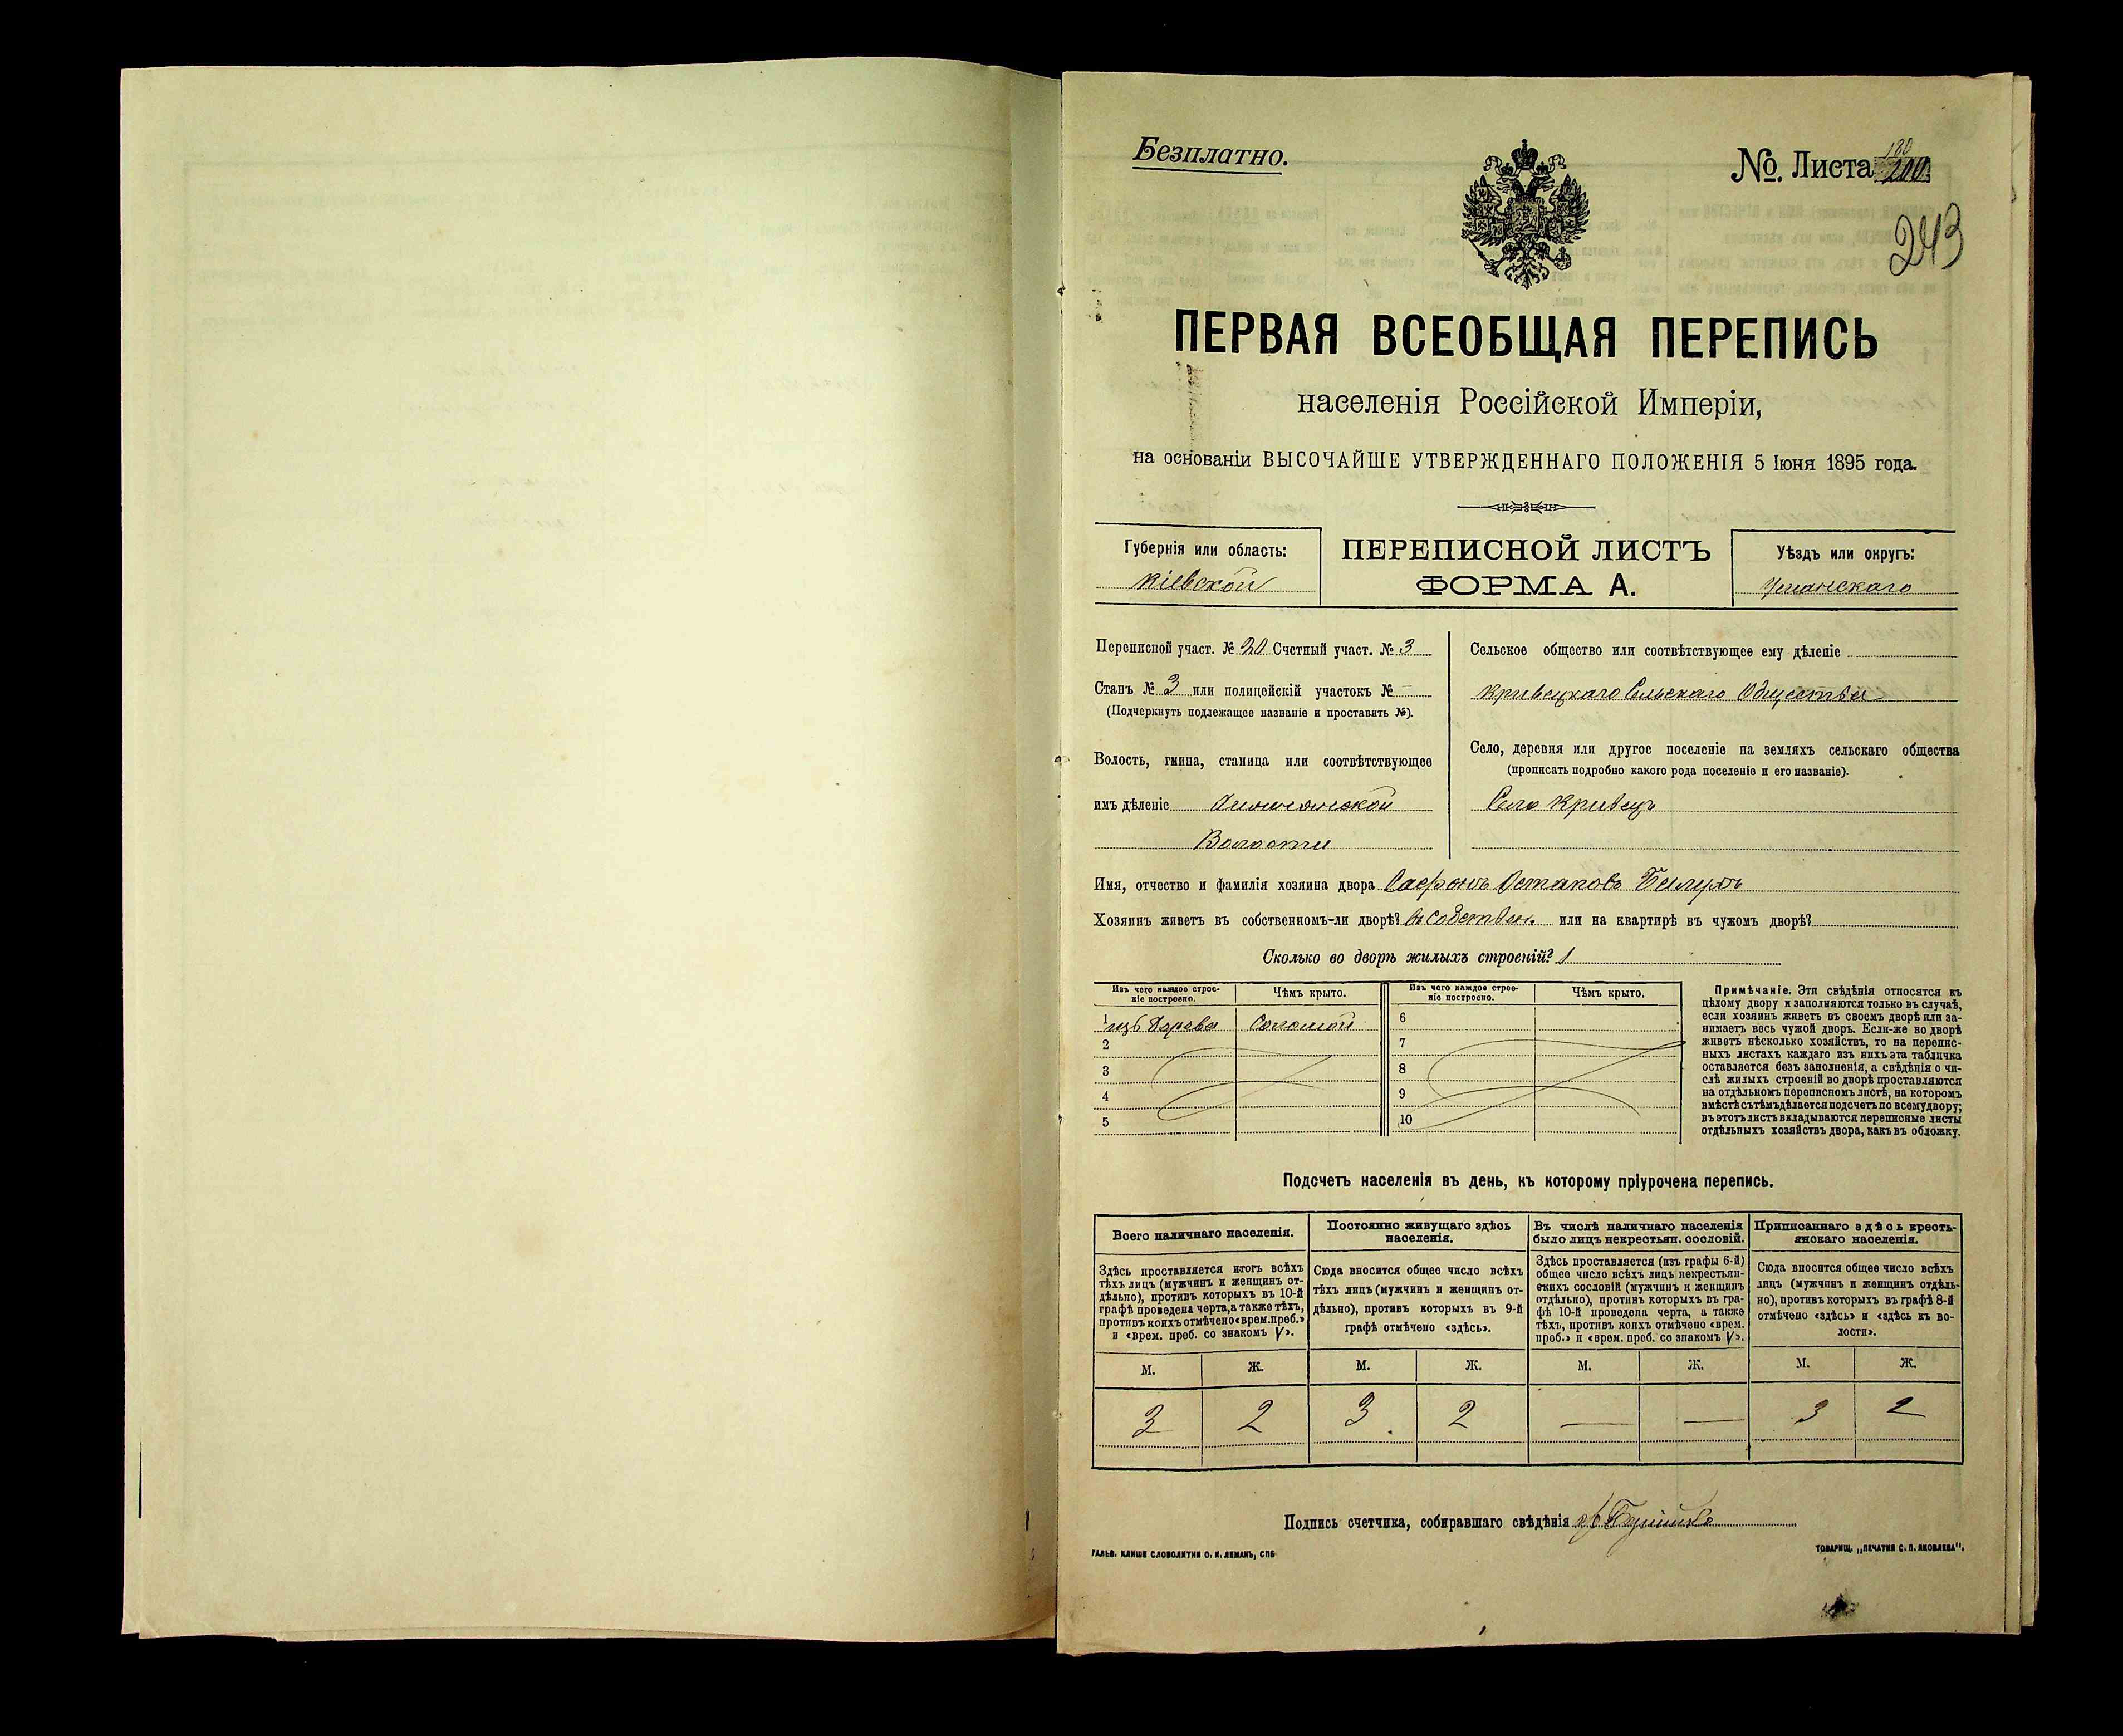 Безплатно.
№. Листа 200
180
243
ПЕРВАЯ ВСЕОБЩАЯ ПЕРЕПИСЬ
населенія Россійской Имперіи,
на основаніи ВЫСОЧАЙШЕ УТВЕРЖДЕННАГО ПОЛОЖЕНІЯ 5 Іюня 1895 года.
Губернія или область:
Кіевской
ПЕРЕПИСНОЙ ЛИСТЪ
ФОРМА А.
Уѣздъ или округъ:
Уманскаго
Переписной участ. № 20 Счетный участ. № 3
Станъ № 3 или полицейскій участокъ № —
(Подчеркнуть подлежащее названіе и проставить №).
Волость, гмина, станица или соотвѣтствующее
имъ дѣленіе
Волости
Сельское общество или соотвѣтствующее ему дѣленіе
Кривецкаго Сельскаго Общества
Село, деревня или другое поселеніе на земляхъ сельскаго общества
(прописать подробно какого рода поселеніе и его названіе).
Село Кривецъ
Имя, отчество и фамилія хозяина двора Сафонъ Остаповъ
Хозяинъ живетъ въ собственномъ-ли дворѣ? въ собствен. или на квартирѣ въ чужомъ дворѣ?
Сколько во дворѣ жилыхъ строеній? 1
Изъ чего каждое строе-
ніе построено.
Чѣмъ крыто.
Изъ чего каждое строе-
ніе построено.
Чѣмъ крыто.
1 изъ дерева Соломой
2
3
4
5
6
7
8
9
10
Примѣчаніе. Эти свѣдѣнія относятся къ
цѣлому двору и заполняются только въ случаѣ,
если хозяинъ живетъ въ своемъ дворѣ или за-
нимаетъ весь чужой дворъ. Если-же во дворѣ
живетъ нѣсколько хозяйствъ, то на перепис-
ныхъ листахъ каждаго изъ нихъ эта табличка
оставляется безъ заполненія, а свѣдѣнія о чи-
слѣ жилыхъ строеній во дворѣ проставляются
на отдѣльномъ переписномъ листѣ, на которомъ
вмѣстѣ съ тѣмъ дѣлается подсчетъ по всему двору;
въ этотъ листъ вкладываются переписные листы
отдѣльныхъ хозяйствъ двора, какъ въ обложку.
Подсчетъ населенія въ день, къ которому пріурочена перепись.
Всего наличнаго населенія.
Здѣсь проставляется итогъ всѣхъ
тѣхъ лицъ (мужчинъ и женщинъ от-
дѣльно), противъ которыхъ въ 10-й
графѣ проведена черта, а также тѣхъ,
противъ коихъ отмѣчено «врем. преб.»
и «врем. преб. со знакомъ V».
Постоянно живущаго здѣсь
населенія.
Сюда вносится общее число всѣхъ
тѣхъ лицъ (мужчинъ и женщинъ от-
дѣльно), противъ которыхъ въ 9-й
графѣ отмѣчено «здѣсь».
Въ числѣ наличнаго населенія
было лицъ некрестьян. сословій.
Здѣсь проставляется (изъ графы 6-й)
общее число всѣхъ лицъ некрестьян-
скихъ сословій (мужчинъ и женщинъ
отдѣльно), противъ которыхъ въ гра-
фѣ 10-й проведена черта, а также
тѣхъ, противъ коихъ отмѣчено «врем.
преб.» и «врем. преб. со знакомъ V».
Приписаннаго здѣсь кресть-
янскаго населенія.
Сюда вносится общее число всѣхъ
лицъ (мужчинъ и женщинъ отдѣль-
но), противъ которыхъ въ графѣ 8-й
отмѣчено «здѣсь» и «здѣсь къ во-
лости».
М. Ж. М. Ж. М. Ж. М. Ж.
3 2 3 2 — — 3 2
Подпись счетчика, собиравшаго свѣдѣнія
ГАЛЬВ. КЛИШЕ СЛОВОЛИТНИ О. И. ЛЕМАНЪ, СПБ
ТОВАРИЩ. „ПЕЧАТНЯ С. П. ЯКОВЛЕВА".